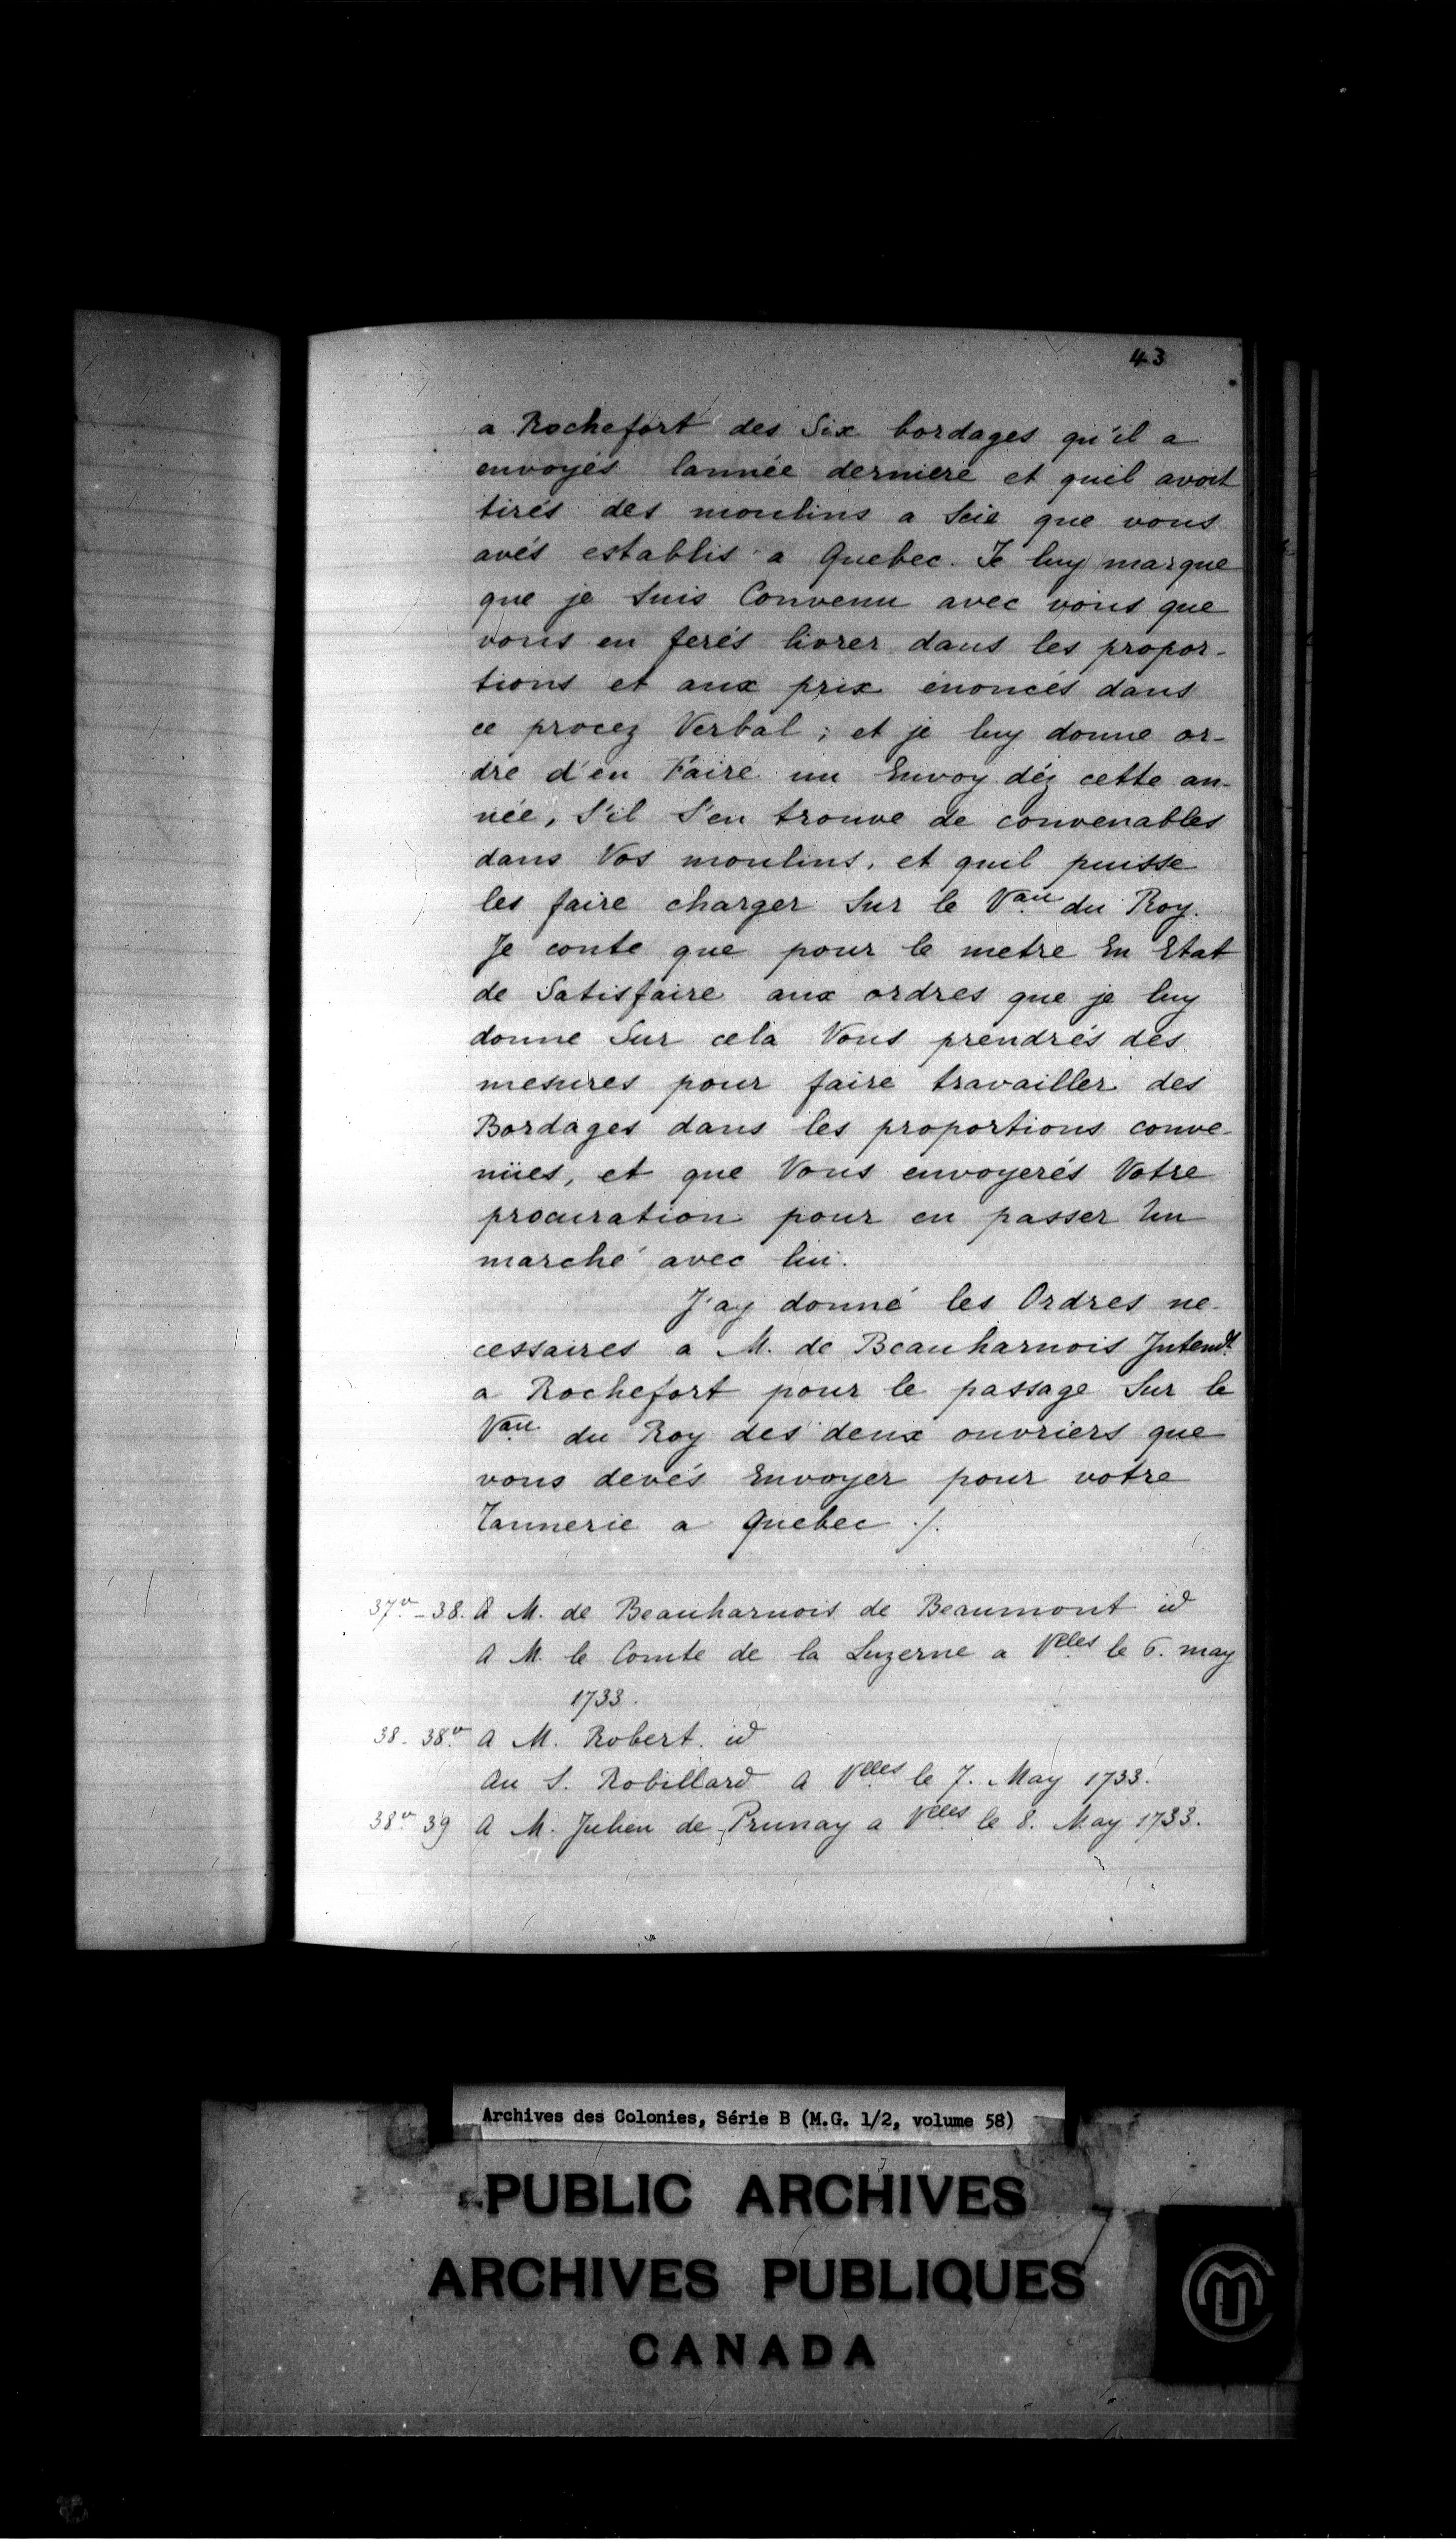 43
a Rochefort des Six bordages qu'il a
envoyés lannée derniere et quil avoit
tirés des moulins a Scie que vous
avés establis a Quebec. Je luy marque
que je Suis Convenu avec vous que
vous en ferés livrer dans les propor-
tions et aux prix énoncés dans
ce procez Verbal ; et je luy donne or-
dre d'en Faire un Envoy déz cette an-
née, S'il S'en trouve de convenables
dans Vos moulins, et quil puisse
les faire charger Sur le Vau du Roy.
Je conte que pour le metre En Etat
de Satisfaire aux ordres que je luy
donne Sur cela Vous prendrés des
mesures pour faire travailler des
Bordages dans les proportions conve-
nües, et que Vous envoyerés Votre
procuration pour en passer Un
marché avec lui.
J'ay donné les Ordres ne-
cessaires a M. de Beauharnois Intendt
a Rochefort pour le passage Sur le
Vau du Roy des deux ouvriers que
vous devés Envoyer pour votre
Tannerie a Quebec ./.
37v - 38. A M. de Beauharnois de Beaumont id
A M. le Comte de la Luzerne a Vlles le 6. may
1733.
38 - 38v A M. Robert. id
Au S. Robillard A Vlles le 7. May 1733.
38v 39 A M. Julien de Prunay a Vlles le 8. May 1733.
Archives des Colonies, Série B (M.G. 1/2, volume 58)
PUBLIC ARCHIVES
ARCHIVES PUBLIQUES
CANADA